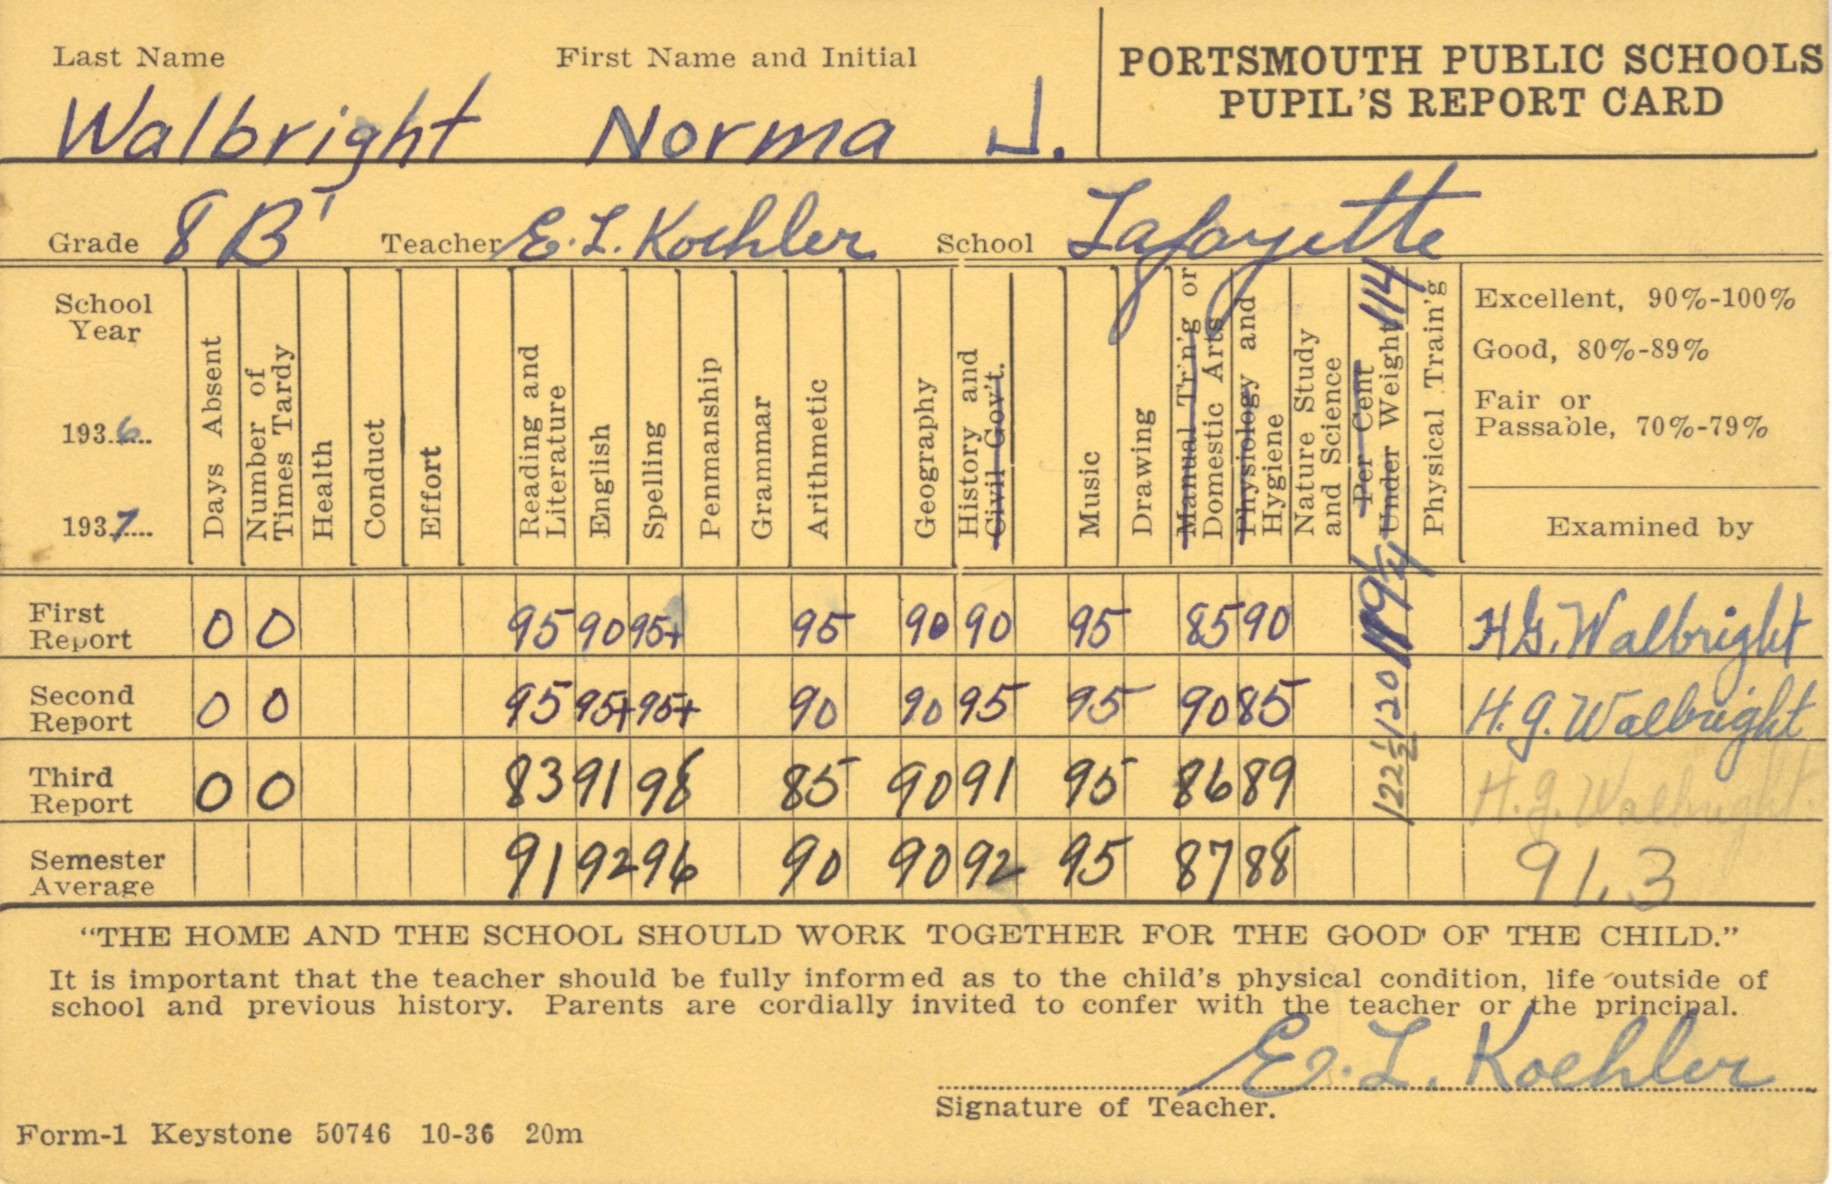 Last Name First Name and Initial
PORTSMOUTH PUBLIC SCHOOLS
PUPIL'S REPORT CARD
Walbright Norma J.
Grade 8 B1 Teacher E. L. Koehler School Lafayette
School
Year
193.6...
193.7...
Days Absent
Number of
Times Tardy
Health
Conduct
Effort
Reading and
Literature
English
Spelling
Penmanship
Grammar
Arithmetic
Geography
History and
Civil Gov't.
Music
Drawing
Manual Tr'n'g or
Domestic Arts
Physiology and
Hygiene
Nature Study
and Science
Per Cent
Under Weight
114
119 1/4
120
122 1/2
Physical Train'g
Excellent, 90%-100%
Good, 80%-89%
Fair or
Passable, 70%-79%
Examined by
First
Report 0 0 95 90 95+ 95 90 90 95 85 90 H. G. Walbright
Second
Report 0 0 95 95+ 95+ 90 90 95 95 90 85 H. G. Walbright
Third
Report 0 0 83 91 98 85 90 91 95 86 89 H. G. Walbright
Semester
Average 91 92 96 90 90 92 95 87 88 91.3
"THE HOME AND THE SCHOOL SHOULD WORK TOGETHER FOR THE GOOD OF THE CHILD."
It is important that the teacher should be fully informed as to the child's physical condition, life outside of
school and previous history. Parents are cordially invited to confer with the teacher or the principal.
E. L. Koehler
Signature of Teacher.
Form-1 Keystone 50746 10-36 20m